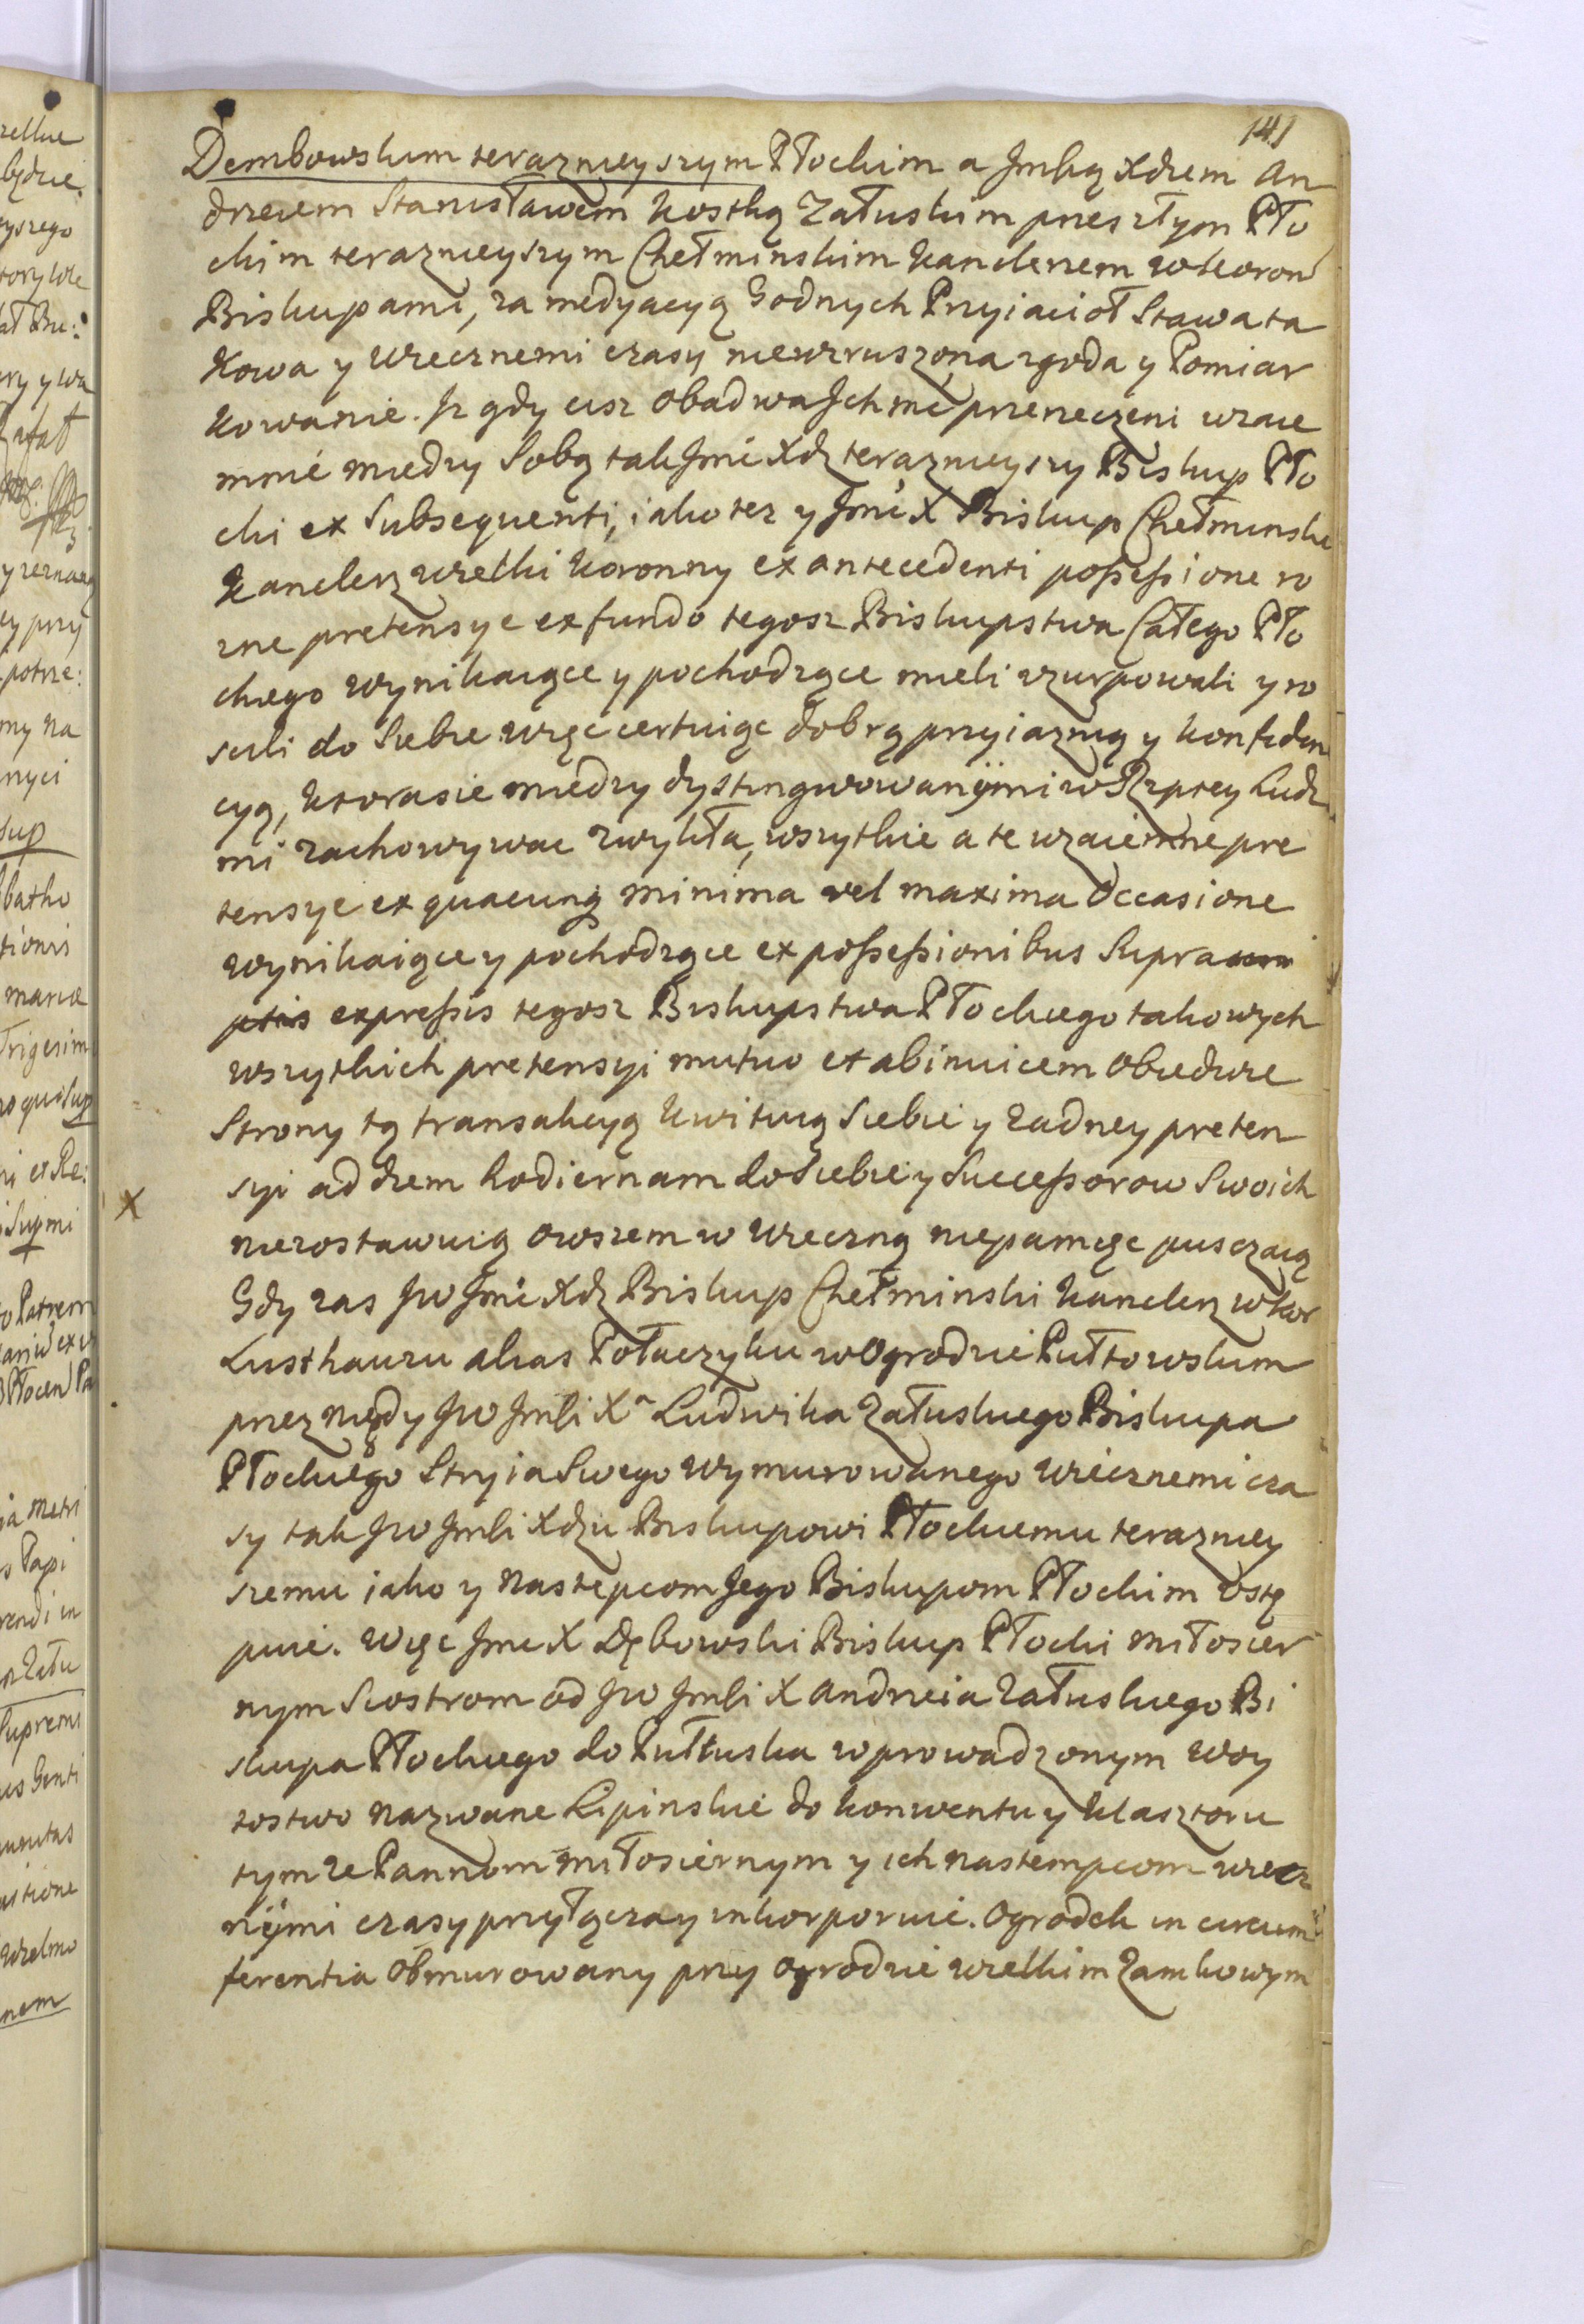 141
Dembowskim teraznieyszym Płockim a Jmscią Xdzem An
drzeiem Stanisławem Kostką Załuskim przeszłym Pło
ckim teraznieyszym Chełminskim Kanclerzem w Koron
Biskupami, za medyacyą Godnych Przyiacioł Stawa ta
kowa y wiecznemi czasy niewzruszona zgoda y Pomiar
kowanie. Iz gdy cisz obadwa Ichmć przerzeczeni wzaie
mnie miedzy Sobą tak Jmć Xdz teraznieyszy Biskup Pło
cki ex Subsequenti, iako tez y Jmć X Biskup Chełminski
Kanclerz wielki Koronny ex antecedenti possessione ro
zne pretensye ex fundo tegosz Biskupstwa Całego Pło
ckiego wynikaiące y pochodzące mieli uzurpowali y ro
scili do Siebie więc certuiąc dobrą przyiaznią y konfiden
cyą, ktora sie miedzy dystingwowanymi w Rzptey Ludz
mi zachowywac zwykła, wszytkie a te wzaiemne pre
tensye ex quacunq minima vel maxima Occasione
wynikaiące y pochodzące ex possessionibus Supra scri
ptis expressis tegosz Biskupstwa Płockiego takowych
wszytkich pretensyi mutuo et abinuicem obiedwie
Strony tą transakcyą kwituią Siebie y zadney preten
syi ad diem hodiernam do Siebie y Successorow Swoich
X
niezostawuią owszem w wieczną niepamięc pusczaią
Gdy zas JW Jmć Xdz Biskup Chełminski Kanclerz w Kor
Lusthauzu alias Pałaczyku w Ogrodzie Pułtowskim
przez niędy JW Jmsci Xa Ludwika Załuskiego Biskupa
Płockiego Stryia Swego wymurowanego wiecznemi cza
sy tak JW Jmsci Xdzu Biskupowi Płockiemu terazniey
szemu iako y Nastepcom Jego Biskupom Płockim ostę
puie. Więc Jmć X Dębowski Biskup Płocki miłosier
nym Siostrom od JW Jmsci X Andrzeia Załuskiego Bi
skupa Płockiego do Pułtuska wprowadzonym Woy
tostwo nazwane Lipinskie do Konwentu y Klasztoru
tymze Pannom miłosiernym y ich nastempcom wiecz
nymi czasy przyłącza y inkorporuie. Ogrodek in circum
ferentia obmurowany przy ogrodzie wielkim Zamkowym